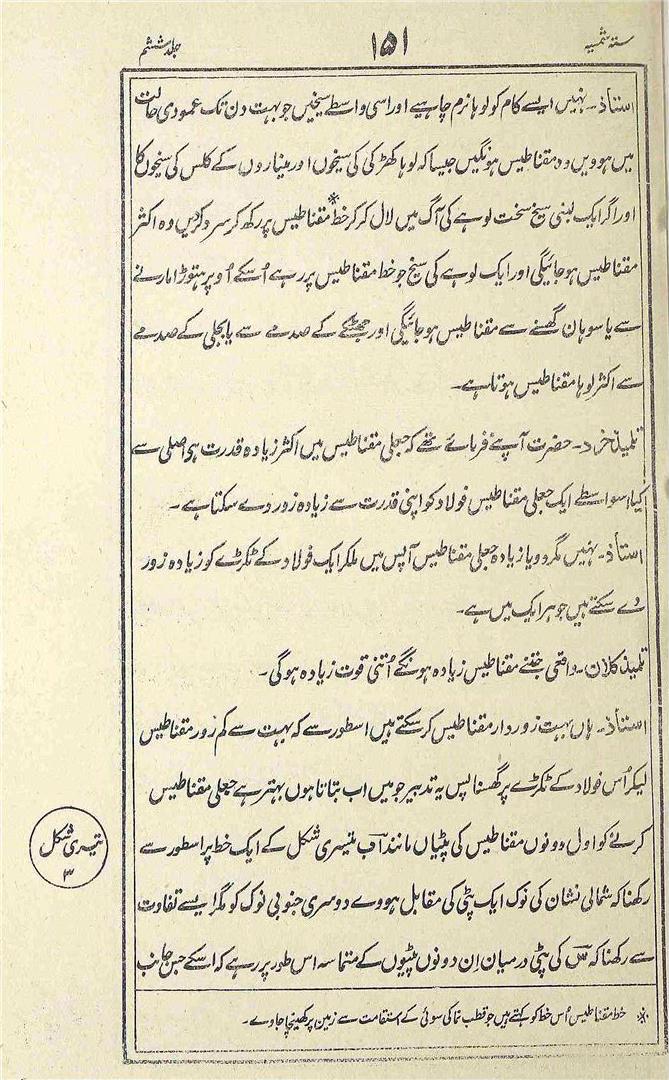 ستہ شمسیہ
۱۵۱
جلد ششم
استاذ۔ نہیں ایسے کام کو لوہا نرم چاہیے اور اسی واسطے سیخیں جو بہت دن تک عمودی حالت
میں ہوویں وہ مقناطیس ہونگیں جیسا کہ لوہا کھڑکی کی سیخوں اور میناروں کے کلس کی سیخوں کا
اور اگر ایک لنبی سیخ سخت لوہے کی آگ میں لال کر کر خط* مقناطیس پر رکھ کر سرد کریں وہ اکثر
مقناطیس ہو جائیگی اور ایک لوہے کی سیخ جو خط مقناطیس پر رہے اُسکے اُوپر ہتوڑا مارنے
سے یا سوہان گھسنے سے مقناطیس ہو جائیگی اور جھٹکے کے صدمے سے یا بجلی کے صدمے
سے اکثر لوہا مقناطیس ہوتا ہے۔
تلمیذ خرد۔ حضرت آپنے فرمائے تھے کہ جعلی مقناطیس میں اکثر زیادہ قدرت ہی اصلی سے
کیا اسواسطے ایک جعلی مقناطیس فولاد کو اپنی قدرت سے زیادہ زور دے سکتا ہے۔
استاذ۔ نہیں مگر دو یا زیادہ جعلی مقناطیس آپس میں ملکر ایک فولاد کے ٹکڑے کو زیادہ زور
دے سکتے ہیں جو ہر ایک میں ہے۔
تلمیذ کلان۔ واقعی جتنے مقناطیس زیادہ ہونگے اُتنی قوت زیادہ ہوگی۔
استاذ۔ ہاں بہت زوردار مقناطیس کر سکتے ہیں اسطور سے کہ بہت سے کم زور مقناطیس
لیکر اُس فولاد کے ٹکڑے پر گھسنا پس یہ تدبیر جو میں اب بتاتا ہوں بہتر ہے جعلی مقناطیس
کرنے کو اول دونوں مقناطیس کی پٹیاں مانند آب تیسری شکل کے ایک خط پر اسطور سے
رکھنا کہ شمالی نشان کی نوک ایک پٹی کی مقابل ہووے دوسری جنوبی نوک کو مگر ایسے تفاوت
سے رکھنا کہ س کی پٹی درمیان اِن دونوں پٹیوں کے متماسہ اس طور پر رہے کہ اسکے جس جانب
تیسری شکل
۳
* خط مقناطیس اُس خط کو کہتے ہیں جو قطب نما کی سوئی کے استقامت سے زمین پر کھینچا جاوے۔